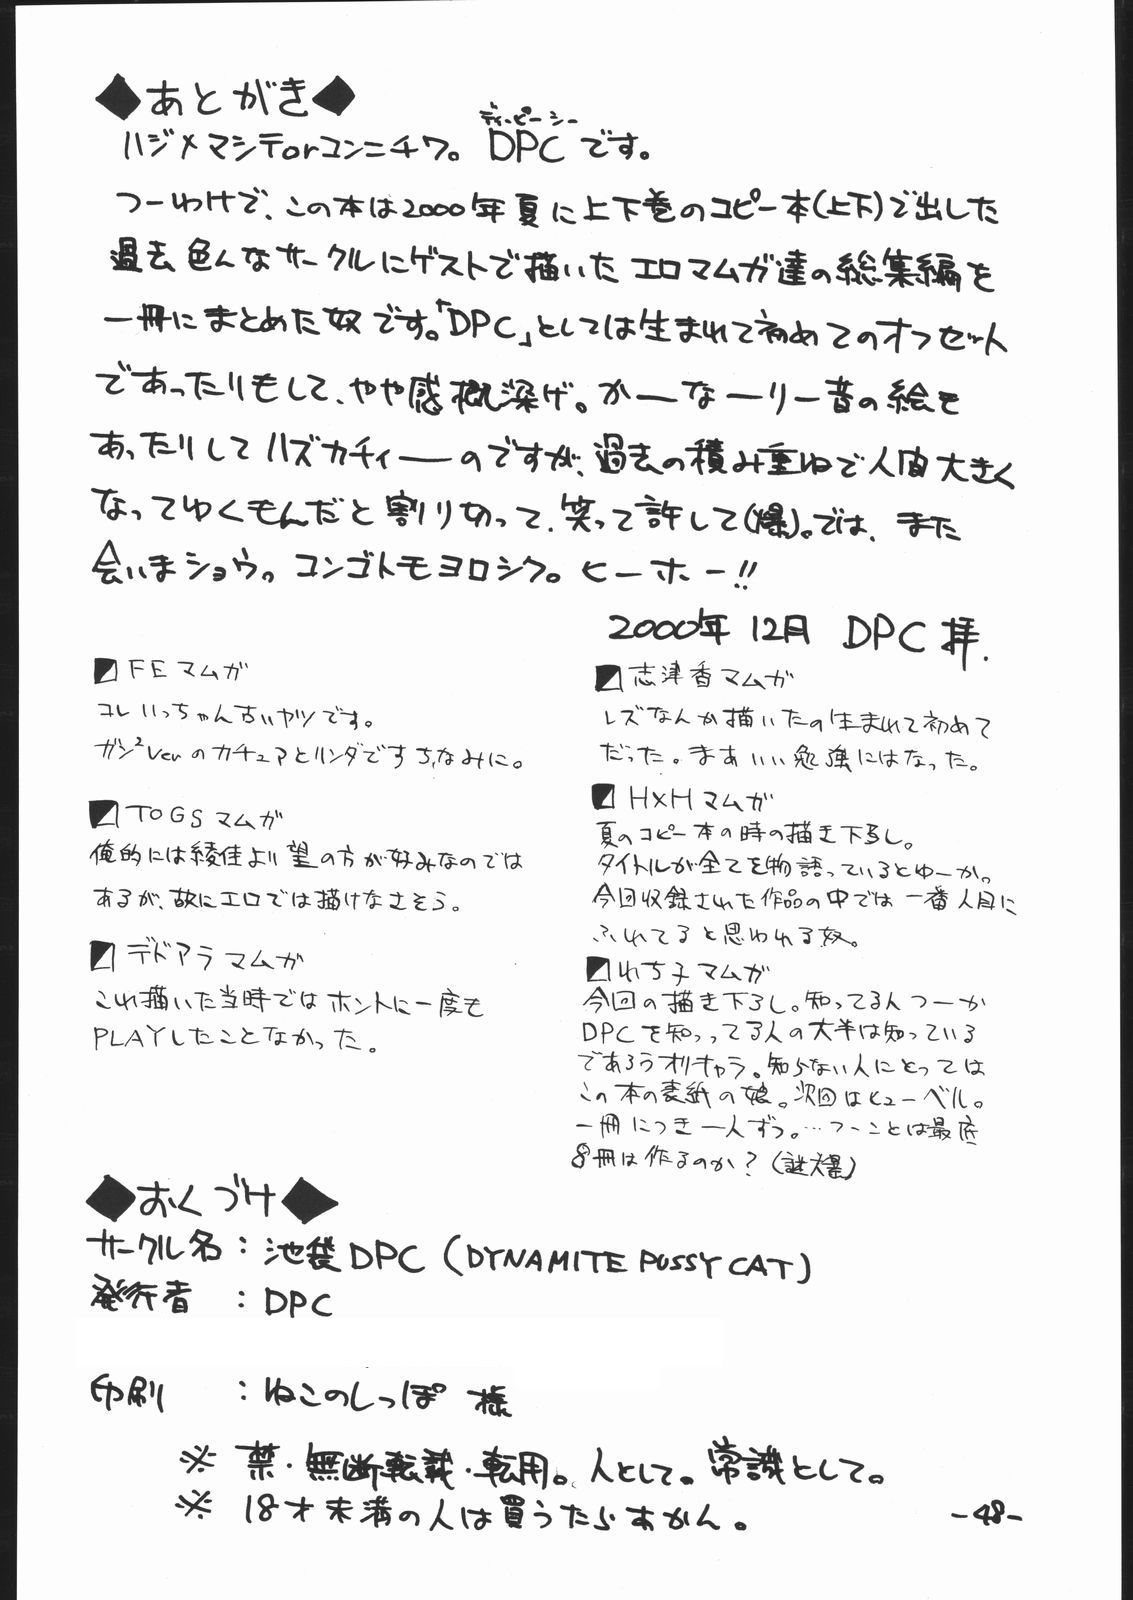 ◆あとがき◆
ディーピーシー
ハジメマシテorコンニチワ。DPCです。
つーわけで、この本は2000年夏に上下巻のコピー本(上下)で出した
過去、色んなサークルにゲストで描いたエロマムガ達の総集編を
一冊にまとめた奴です。「DPC」としては生まれて初めてのオフセット
であったりもして、やや感概深げ。かーなーりー昔の絵も
あったりしてハズカチィーのですが、過去の積み重ねで人間大きく
なってゆくもんだと割り切って、笑って許して(爆)。では、また
会いまショウっ。コンゴトモヨロシク。ヒーホー!!
2000年12月 DPC 拝.
FEマムガ
コレいっちゃん古いヤツです。
ガシ²Ver.のカチュアとリンダですちなみに。
TOGSマムガ
俺的には綾佳より望の方が好みなのでは
あるが、故にエロでは描けなさそう。
デドアラマムガ
これ描いた当時ではホントに一度も
PLAYしたことなかった。
志津香マムガ
レズなんか描いたの生まれて初めて
だった。まあいい勉強にはなった。
H×Hマムガ
夏のコピー本の時の描き下ろし。
タイトルが全てを物語っているとゆーか。
今回収録された作品の中では一番人目に
ふれてると思われる奴。
れち子マムガ
今回の描き下ろし。知ってる人つーか
DPCを知ってる人の大半は知っている
であろうオリキャラ。知らない人にとっては
この本の表紙の娘。次回はヒューベル。
一冊につき一人ずつ。…つーことは最底
8冊は作るのか?(謎爆)
◆おくづけ◆
サークル名:池袋DPC(DYNAMITE PUSSY CAT)
発行者:DPC
印刷:ねこのしっぽ 様
※ 禁・無断転載・転用。人として。常識として。
※ 18才未満の人は買うたらあかん。
-48-